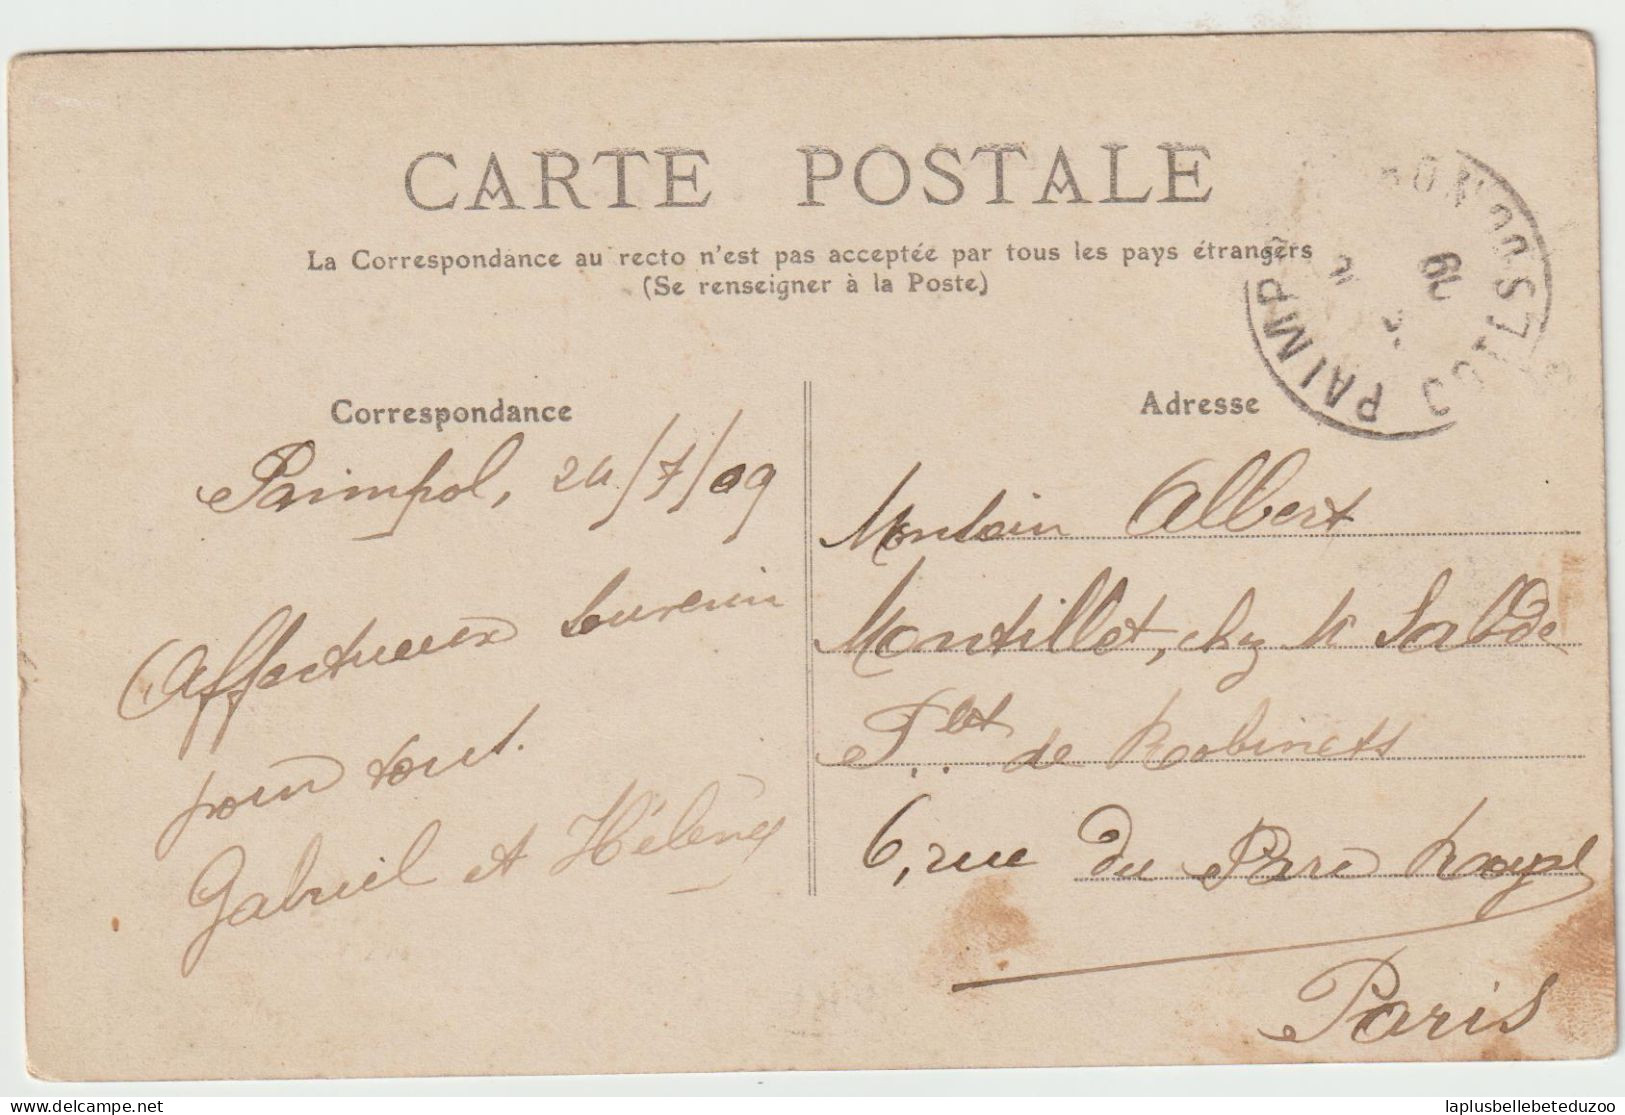 CARTE POSTALE
La Correspondance au recto n'est pas acceptée par tous les pays étrangers
(Se renseigner à la Poste)
PAIMPOL
COTES DU NORD
09
Correspondance
Paimpol, 24/7/09
Affectueux
pour tous.
Gabriel et Hélène
Adresse
Albert
Montillet, chez Mr
Fbt de Robinets
6, rue du Parc Royal
Paris
laplusbellebeteduzoo